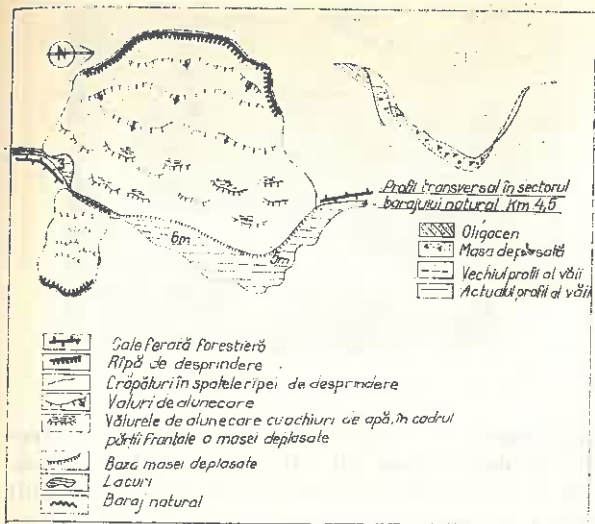 N
6m
5m
Profil transversal în sectorul
barajului natural Km 4,5
Oligocen
Masa deplasată
Vechiul profil al văii
Actualul profil al văii
Cale ferară forestieră
Rîpă de desprindere
Crăpături în spatele ripei de desprindere
Valuri de alunecare
Vălurele de alunecare cu ochiuri de apă, în cadrul
părții frontale a masei deplasate
Baza masei deplasate
Lacuri
Baraj natural